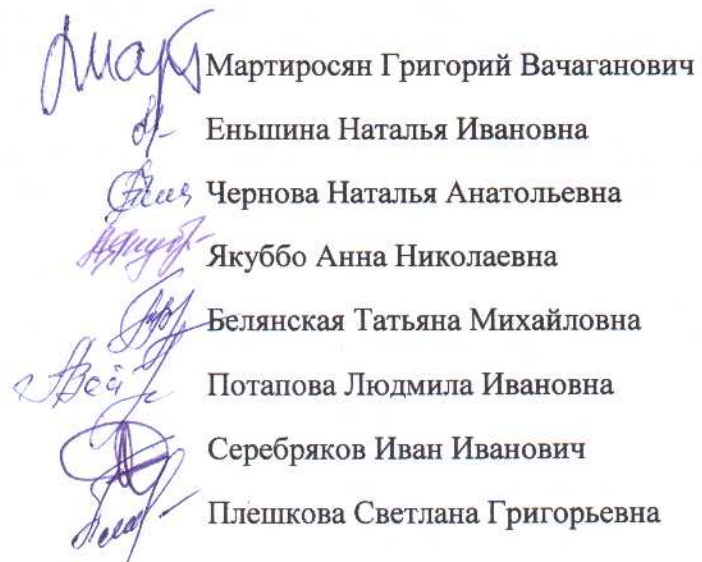 Мартиросян Григорий Вачаганович
Еньшина Наталья Ивановна
Чернова Наталья Анатольевна
Якуббо Анна Николаевна
Белянская Татьяна Михайловна
Потапова Людмила Ивановна
Серебряков Иван Иванович
Плешкова Светлана Григорьевна